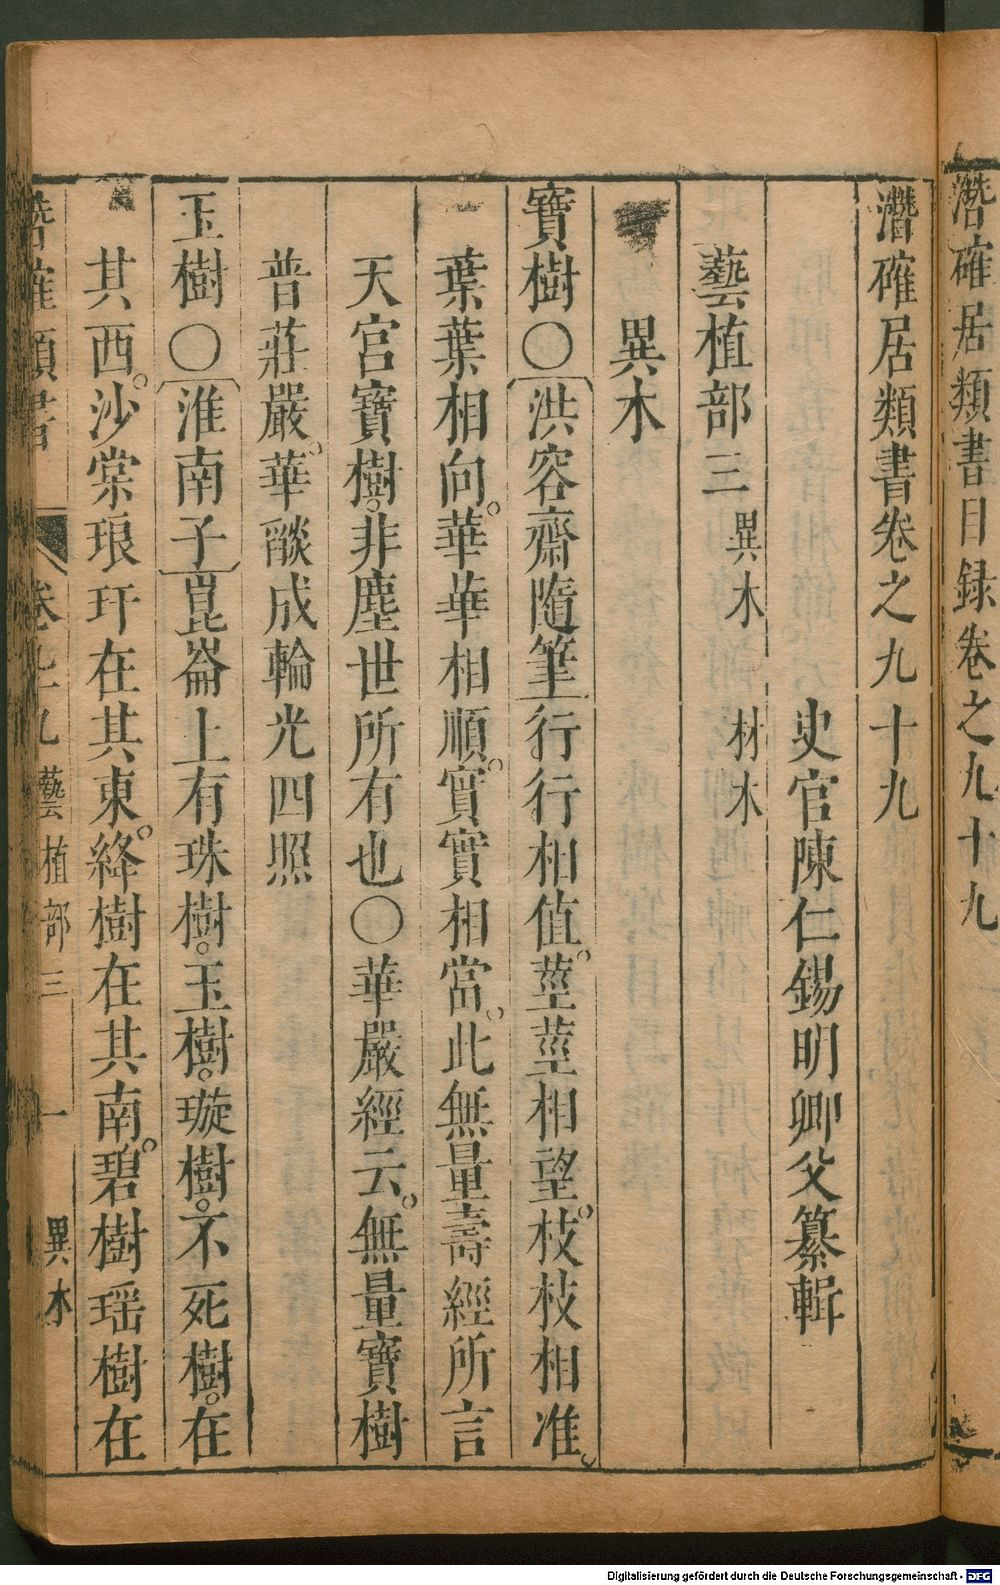 潛確居類書目録卷之九十九
潛確居類書卷之九十九
史官陳仁錫明卿父纂輯
藝植部三 異木 材木
異木
寶樹〇〔洪容齋隨筆〕行行相值。莖莖相望。枝枝相准。
葉葉相向。華華相順。實實相當。此無量壽經所言
天宮寶樹。非塵世所有也〇華嚴經云。無量寶樹
普莊嚴。華燄成輪光四照
玉樹〇〔淮南子〕崑崙上有珠樹。玉樹。璇樹。不死樹。在
其西。沙棠琅玕在其東。絳樹在其南。碧樹瑶樹在
潛確類書 卷九十九 藝植部三 一 異木
Digitalisierung gefördert durch die Deutsche Forschungsgemeinschaft - DFG